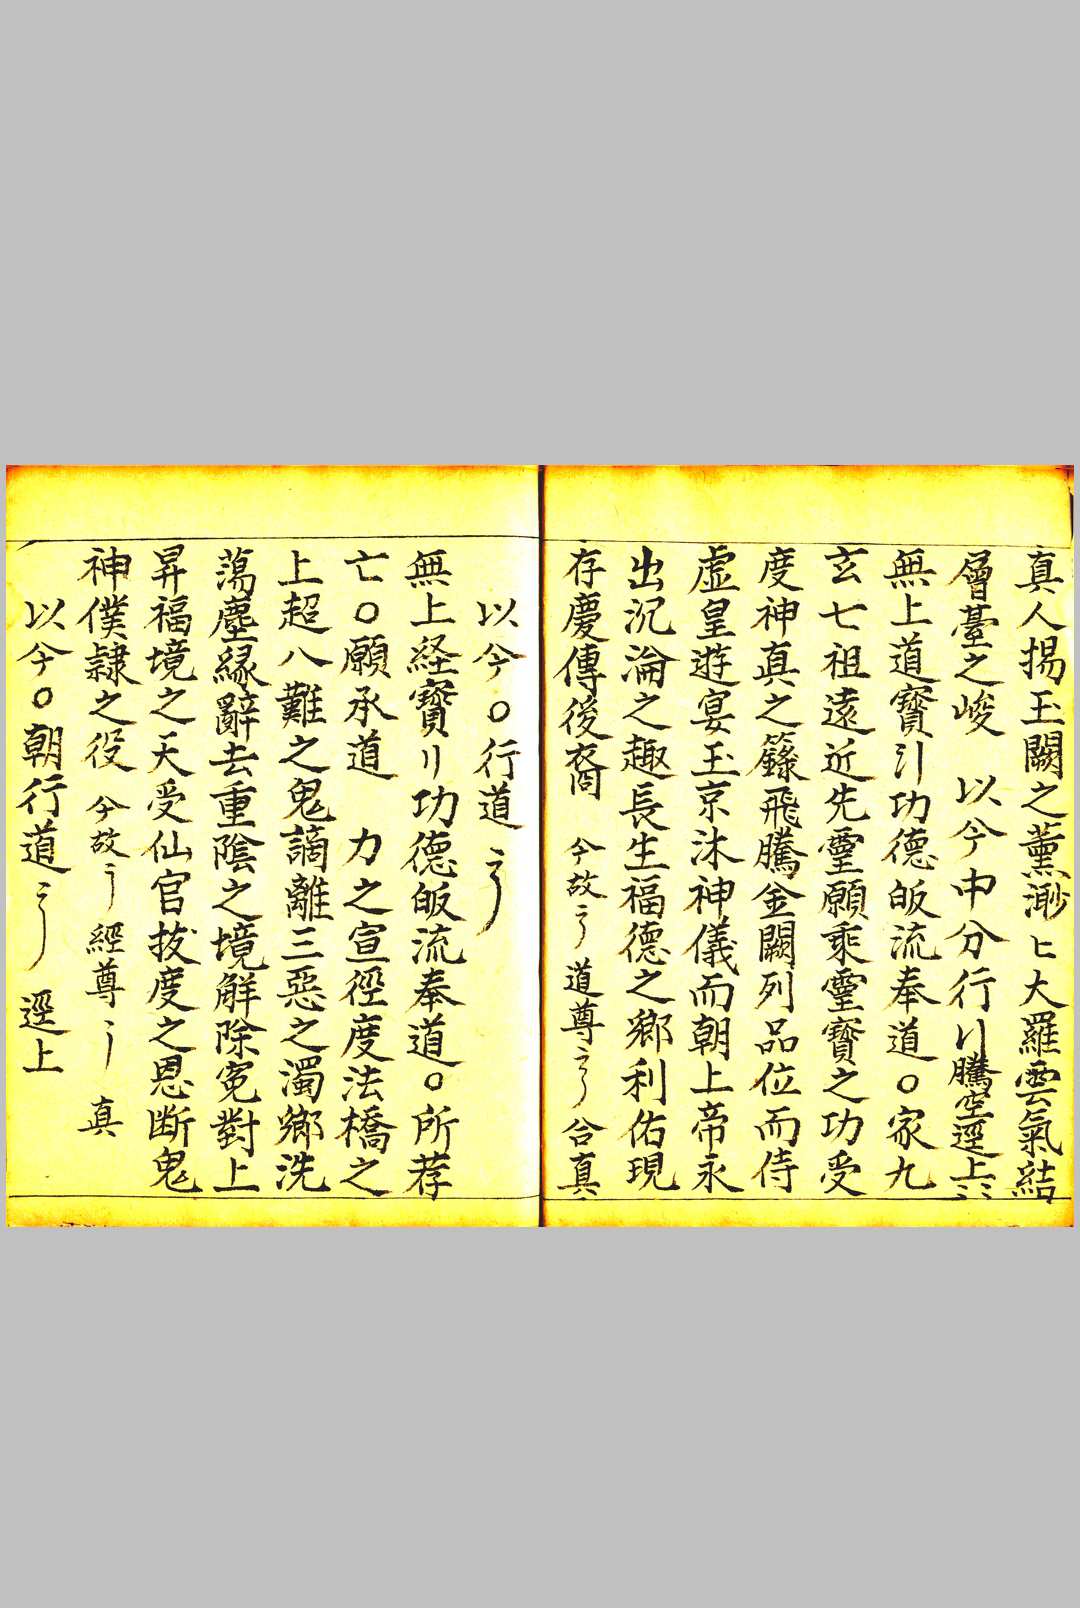 真人揚玉闕之薰渺匕大羅雲氣結
層臺之峻　以今中分行〢騰空逕上
無上道寳功德皈流奉道○家九
玄七祖遠近先靈願乘靈寳之功受
度神真之籙飛騰金闕列品位而侍
虛皇遊宴玉京沐神儀而朝上帝永
出沉淪之趣長生福德之鄉利佑現
存慶傳後裔　今故　道尊　合真
以今○行道
無上経寳〢功德皈流奉道○所荐
亡○願承道　力之宣徑度法橋之
上超八難之鬼謫離三惡之濁鄉洗
蕩塵緣辭去重陰之境解除冤對上
昇福境之天受仙官拔度之恩断鬼
神僕隸之役　今故　經尊　真
以今○朝行道　逕上